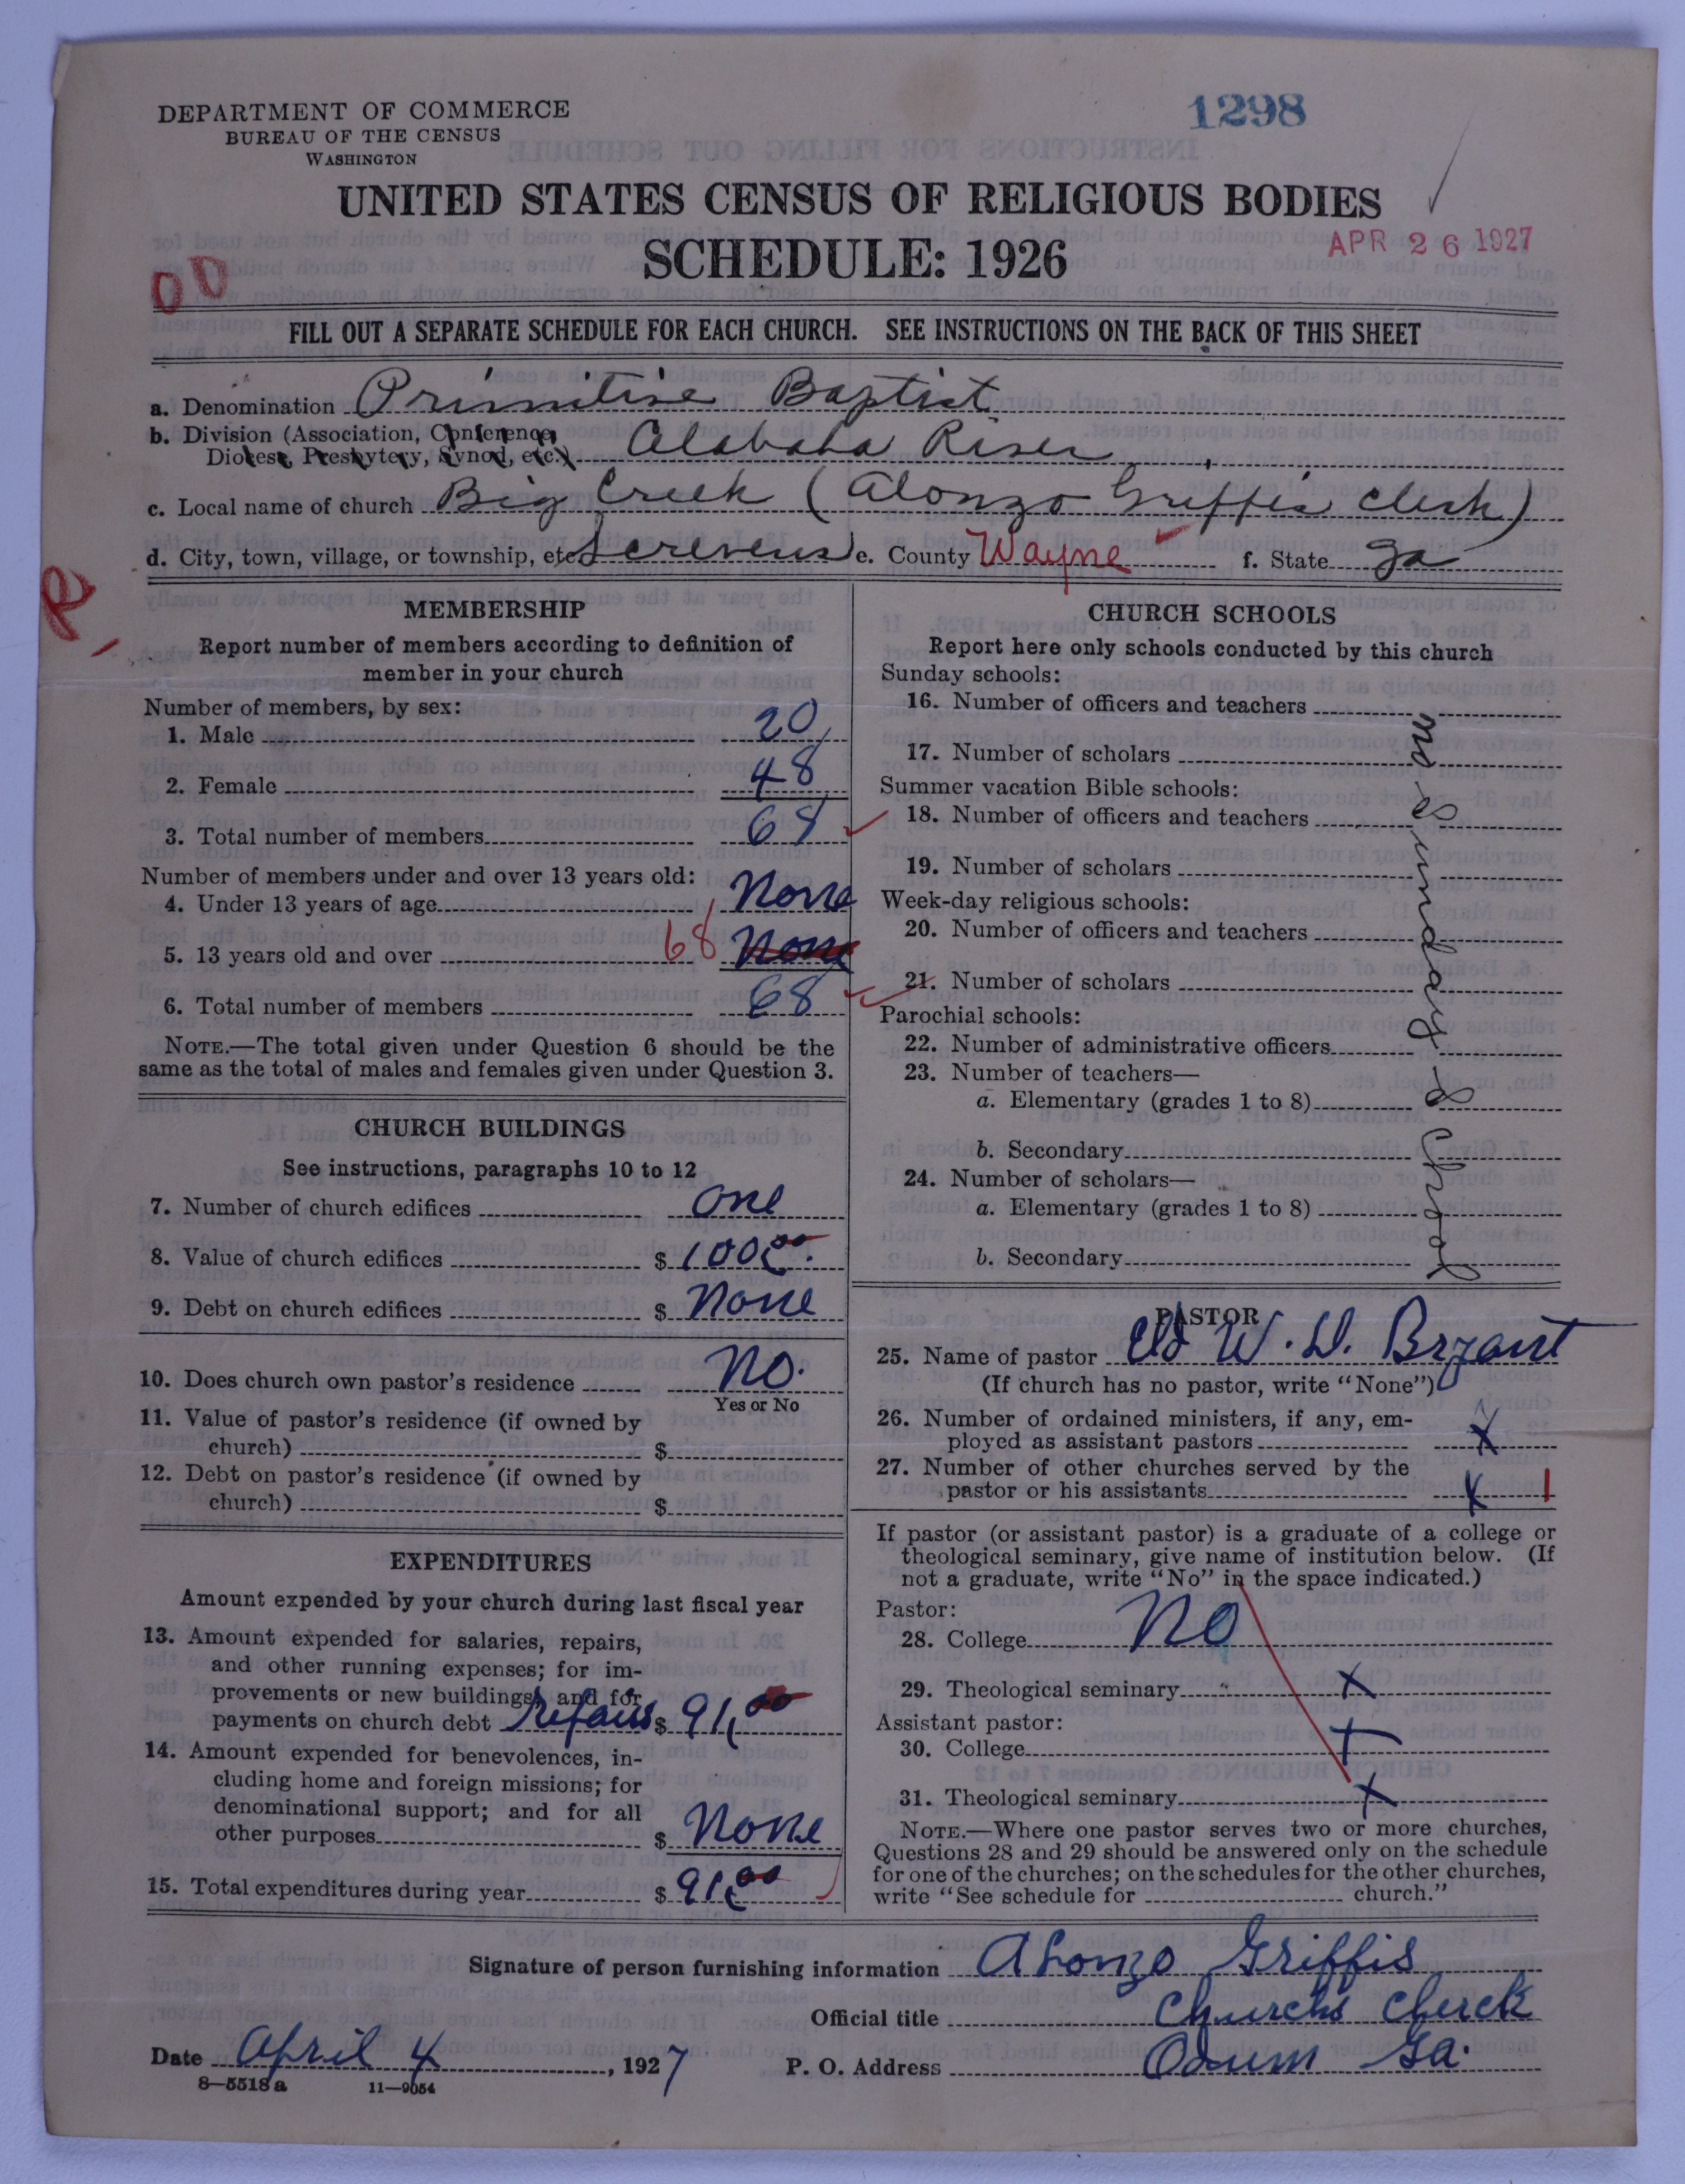 DEPARTMENT OF COMMERCE
BUREAU OF THE CENSUS
WASHINGTON
1298
UNITED STATES CENSUS OF RELIGIOUS BODIES
SCHEDULE: 1926
APR 26 1927
FILL OUT A SEPARATE SCHEDULE FOR EACH CHURCH. SEE INSTRUCTIONS ON THE BACK OF THIS SHEET
a. Denomination Primitive Baptist
b. Division (Association, Conference,
Diocese, Presbytery, Synod, etc.) Alabaha River
c. Local name of church Big Creek (Alonzo Griffis Clerk)
d. City, town, village, or township, etc. Screvens e. County Wayne f. State Ga
R
MEMBERSHIP
Report number of members according to definition of
member in your church
Number of members, by sex:
1. Male 20
2. Female 48
3. Total number of members 68
Number of members under and over 13 years old:
4. Under 13 years of age None
5. 13 years old and over 68 None
6. Total number of members 68
NOTE.—The total given under Question 6 should be the
same as the total of males and females given under Question 3.
CHURCH BUILDINGS
See instructions, paragraphs 10 to 12
7. Number of church edifices one
8. Value of church edifices $
9. Debt on church edifices $ None
10. Does church own pastor's residence No.
Yes or No
11. Value of pastor's residence (if owned by
church) $
12. Debt on pastor's residence (if owned by
church) $
EXPENDITURES
Amount expended by your church during last fiscal year
13. Amount expended for salaries, repairs,
and other running expenses; for im-
provements or new buildings; and for
payments on church debt repairs $ 91.00
14. Amount expended for benevolences, in-
cluding home and foreign missions; for
denominational support; and for all
other purposes $ None
15. Total expenditures during year $ 91.00
CHURCH SCHOOLS
Report here only schools conducted by this church
Sunday schools:
16. Number of officers and teachers
17. Number of scholars
Summer vacation Bible schools:
18. Number of officers and teachers
19. Number of scholars
Week-day religious schools:
20. Number of officers and teachers
21. Number of scholars
Parochial schools:
22. Number of administrative officers
23. Number of teachers—
a. Elementary (grades 1 to 8)
b. Secondary
24. Number of scholars—
a. Elementary (grades 1 to 8)
b. Secondary
PASTOR
25. Name of pastor Eld W. D. Bryant
(If church has no pastor, write "None")
26. Number of ordained ministers, if any, em-
ployed as assistant pastors X
27. Number of other churches served by the
pastor or his assistants X 1
If pastor (or assistant pastor) is a graduate of a college or
theological seminary, give name of institution below. (If
not a graduate, write "No" in the space indicated.)
Pastor:
28. College No
29. Theological seminary X
Assistant pastor:
30. College X
31. Theological seminary X
NOTE.—Where one pastor serves two or more churches,
Questions 28 and 29 should be answered only on the schedule
for one of the churches; on the schedules for the other churches,
write "See schedule for church."
Signature of person furnishing information Alonzo Griffis
Official title Church Clerck
Date April 4, 1927 P. O. Address Odum Ga.
8—5518 a 11—9054